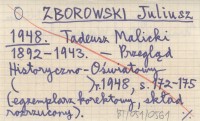 O ZBOROWSKI Juliusz
1948. Tadeusz Malicki
1892-1943. — Przegląd
Historyczno-Oświatowy
( )r.1948, s.172-175
(egzemplarz korektowy, skład
rozrzucony).